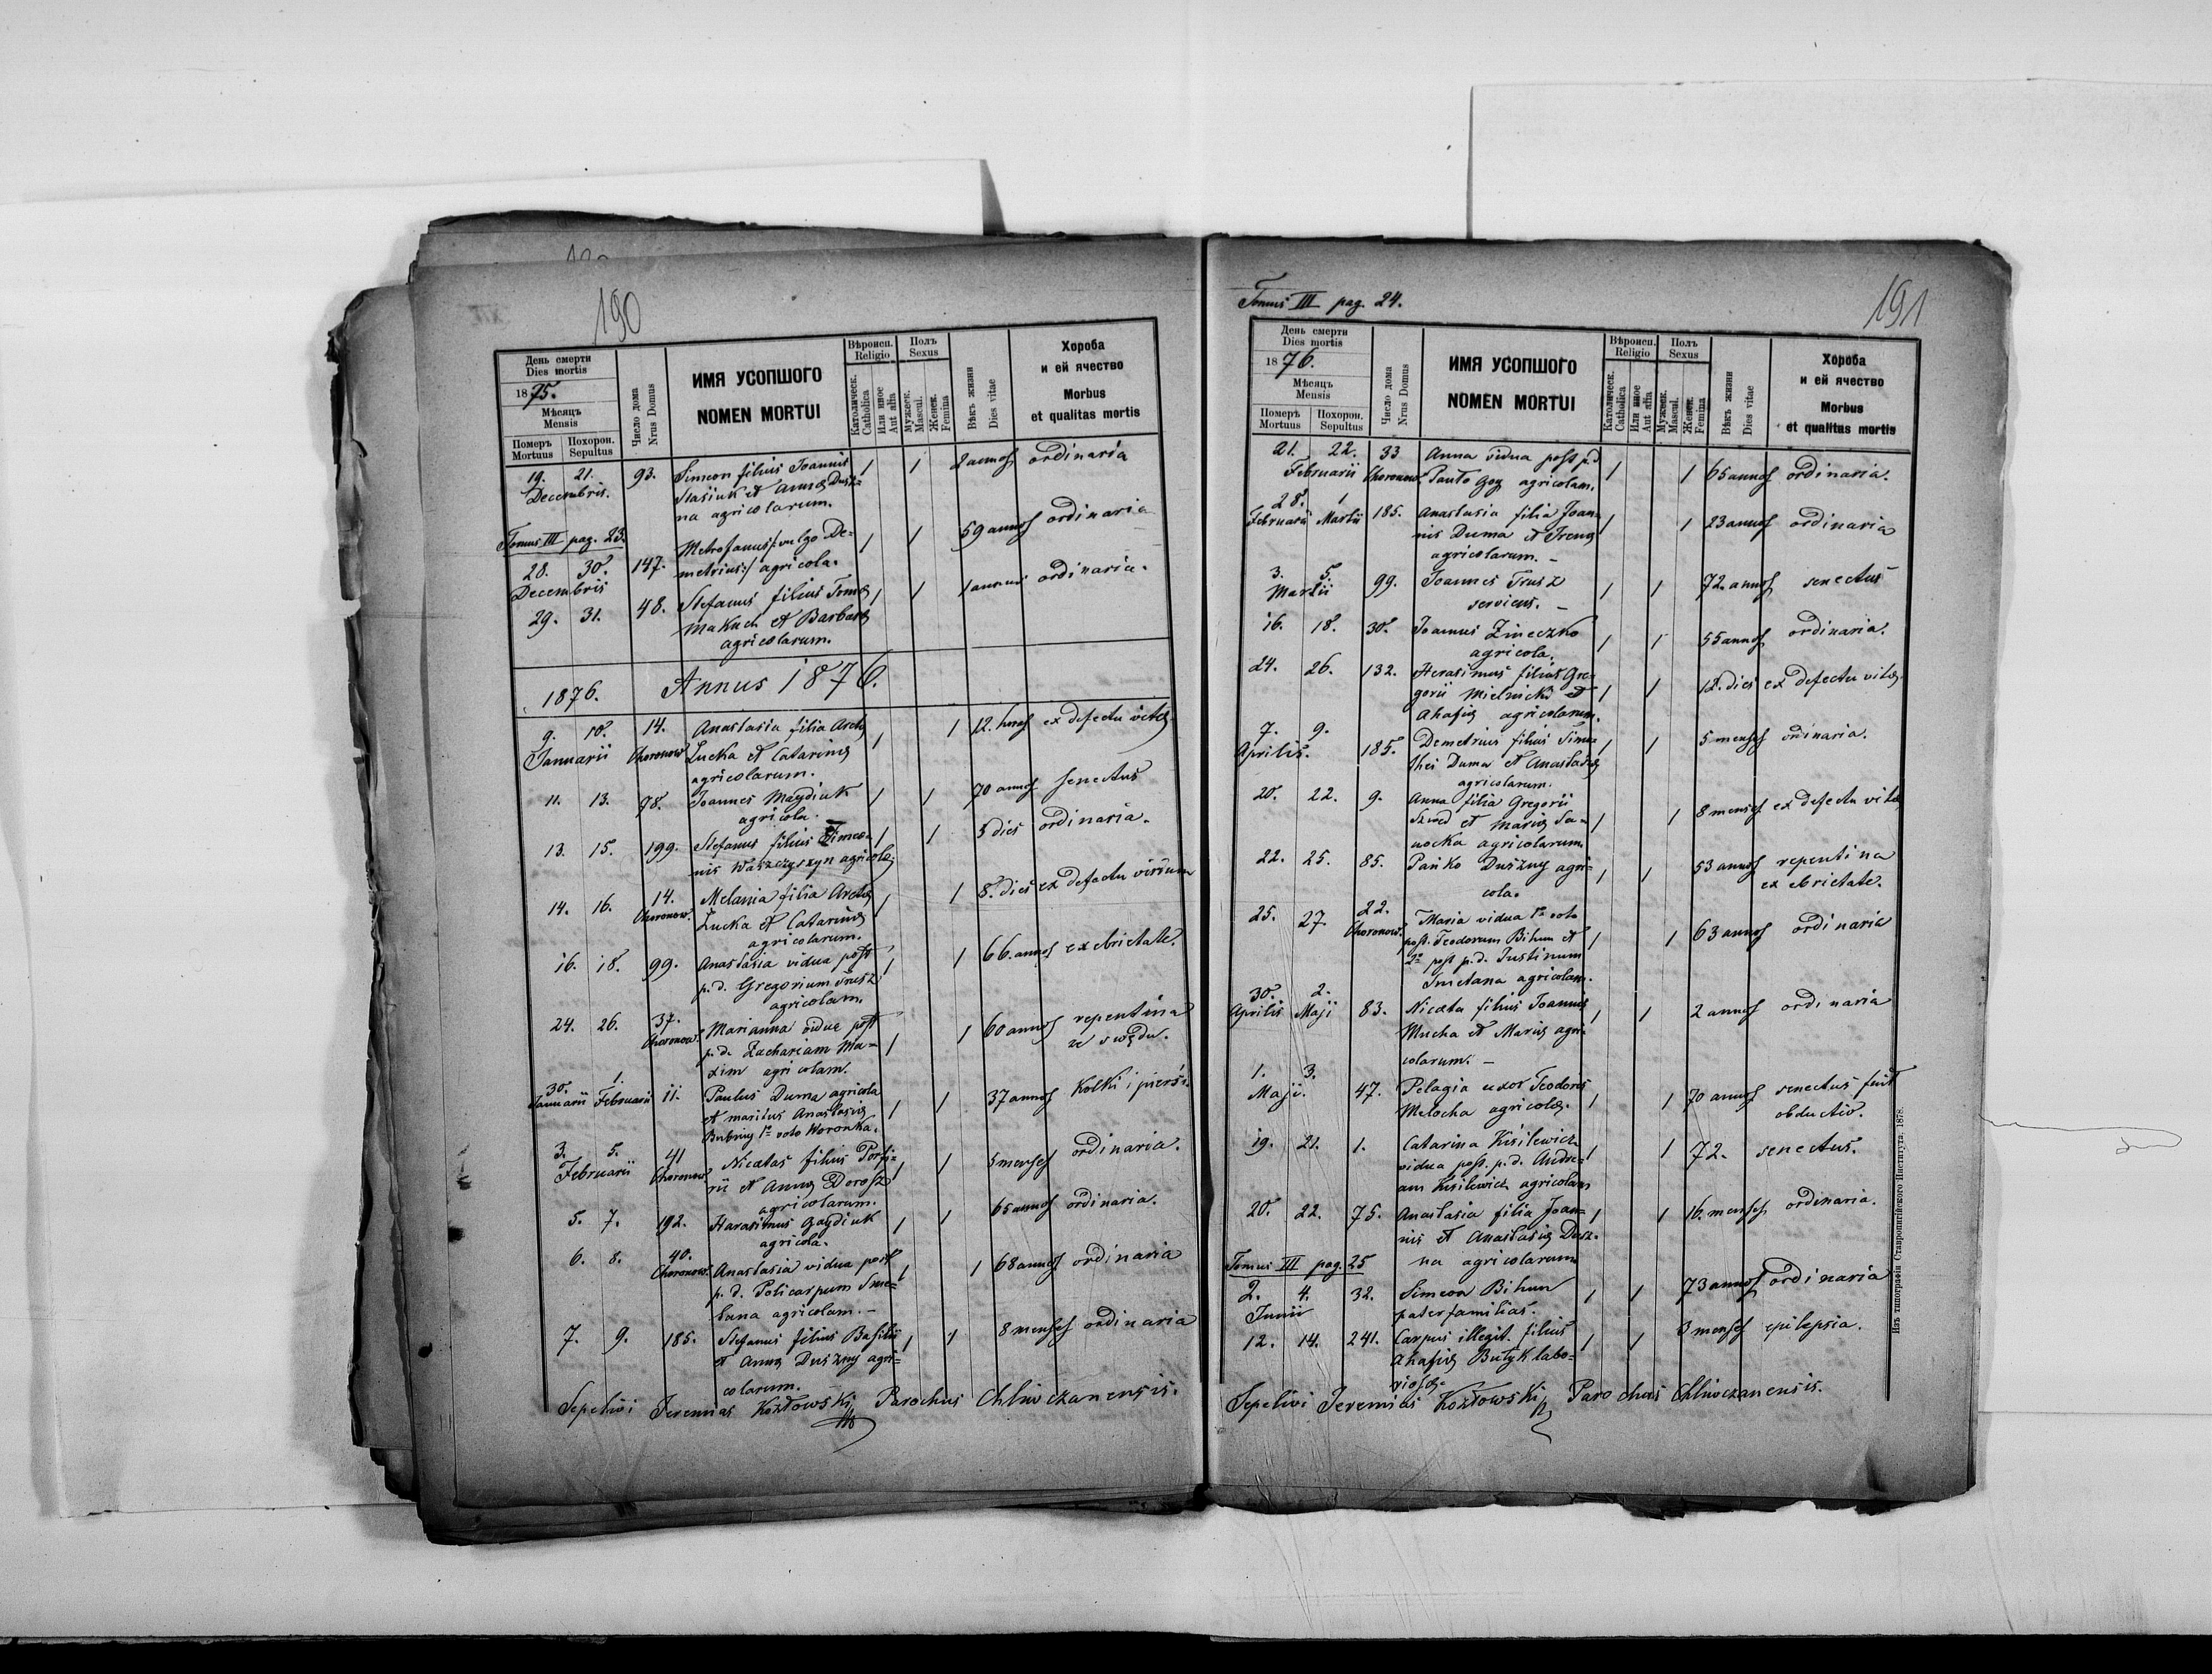 190
День смерти
Dies mortis
1875.
Мѣсяцъ
Mensis
Померъ
Mortuus
Похорон.
Sepultus
Число дома
Nrus Domus
ИМЯ УСОПШОГО
NOMEN MORTUI
Вѣроисп.
Religio
Католическ.
Catholica
Или иное
Aut alia
Полъ
Sexus
Мужеск.
Mascul.
Женск.
Femina
Вѣкъ жизни
Dies vitae
Хороба
и ей ячество
Morbus
et qualitas mortis
19. 21. 93. Simeon filius Joannis 1 1 2 annos ordinaria
Decembris. Stasiuk et Annæ Dusz=
na agricolarum.
Tomus III pag. 23.
28. 30. 147. Metrofanus /: vulgo De= 1 1 59 annos ordinaria
Decembris metrius :/ agricola.
29. 31. 48. Stefanus filius Tomæ 1 1 1 annum ordinaria.
Makuch et Barbaræ
agricolarum.
1876. Annus 1876.
9. 10. 14. Anastasia filia 1 1 12. horas ex defectu vitæ
Januarii Choronow. Łucka et Catarinæ
agricolarum.
11. 13. 78. Joannes Maydiuk 1 1 70 annos senectus
agricola.
13. 15. 199. Stefanus filius Simeo= 1 1 5 dies ordinaria.
nis Waszczyszyn agricolæ
14. 16. 14. Melania filia 1 1 8. dies ex defectu virium
Choronow. Łucka et Catarinæ
agricolarum.
16. 18. 99. Anastasia vidua post 1 1 66. annos ex ebrietate.
p. d. Gregorium Trusz
agricolam.
24. 26. 37. Marianna vidua post 1 1 60 annos repentina
Choronow. p. d. Zachariam Ma= ze swędu.
xim agricolam.
30. 1. 11. Paulus Duma agricola 1 1 37 annos Kolki i piersi.
Januarii Februarii et maritus Anastasiæ
1º voto Woronka.
3. 5. 41 Nicetas filius Porfi= 1 1 5 menses ordinaria.
Februarii Choronow. rii et Annæ Dorosz
agricolarum.
5. 7. 192. Harasimus Gaydiuk 1 1 65 annos ordinaria.
agricola.
6. 8. 40. Anastasia vidua post 1 1 68 annos ordinaria
Choronow. p. d. Policarpum Sme=
tana agricolam. –
7. 9. 185. Stefanus filius Basilii 1 1 8 menses ordinaria
et Annæ Duszny agri=
colarum. –
Sepelivi Jeremias Kozłowski Parochus Chliwczanensis.
Tomus III pag. 24.
191
День смерти
Dies mortis
1876.
Мѣсяцъ
Mensis
Померъ
Mortuus
Похорон.
Sepultus
Число дома
Nrus Domus
ИМЯ УСОПШОГО
NOMEN MORTUI
Вѣроисп.
Religio
Католическ.
Catholica
Или иное
Aut alia
Полъ
Sexus
Мужеск.
Mascul.
Женск.
Femina
Вѣкъ жизни
Dies vitae
Хороба
и ей ячество
Morbus
et qualitas mortis
21. 22. 33 Anna vidua post p.d 1 1 65 annos ordinaria.
Februarii Choronow. Pawło Goy agricolam.
28. 1 185. Anastasia filia Joan= 1 1 23 annos ordinaria
Februarii Martii nis Duma et Irenæ
agricolarum. –
3. 5. 99. Joannes Trusz 1 1 72. annos senectus
Martii serviens. –
16. 18. 30. Joannes Zineczko 1 1 55 annos ordinaria.
agricola.
24. 26. 132. Herasimus filius Gre= 1 1 12. dies ex defectu vitæ
gorii Mielnicki et
Ahafiæ agricolarum.
7. 9. 185. Demetrius filius Timo= 1 1 5 menses ordinaria.
Aprilis. thei Duma et Anastasiæ
agricolarum.
20. 22. 9. Anna filia Gregorii 1 1 8 menses ex defectu vitæ
Szwed et Mariæ Sa=
nocka agricolarum.
22. 25. 85. Pańko Duszny agri= 1 1 53 annos repentina
cola. ex ebrietate.
25. 27. 22. Maria vidua 1º voto 1 1 63 annos ordinaria
Choronow. post. Teodorum Bihun et
2º post p.d. Justinum
Smetana agricolam.
30. 2. 83. Niceta filius Joannis 1 1 2 annos ordinaria
Aprilis Maji Mucha et Mariæ agri=
colarum. –
1. 3. 47. Pelagia uxor Teodori 1 1 70 annos senectus fuit
Maji. Melocha agricolæ. obductio.
19. 21. 1. Catarina Kisilewicz 1 1 72. senectus.
vidua post. p.d. Andre=
am Kisilewicz agricolam
20. 22. 75. Anastasia filia Joan= 1 1 16. menses ordinaria.
nis et Anastasiæ Dusz=
na agricolarum
Tomus III pag. 25
2. 4. 32. Simeon Bihun 1 1 73 annos ordinaria
Junii paterfamilias.
12. 14. 241. Carpus illegit. filius 1 1 3 menses epilepsia.
Ahafiæ Butyk labo=
riosæ.
Sepelivi Jeremias Kozłowski Parochus Chliwczanensis.
Изъ типографіи Ставропигійского Института. 1878.